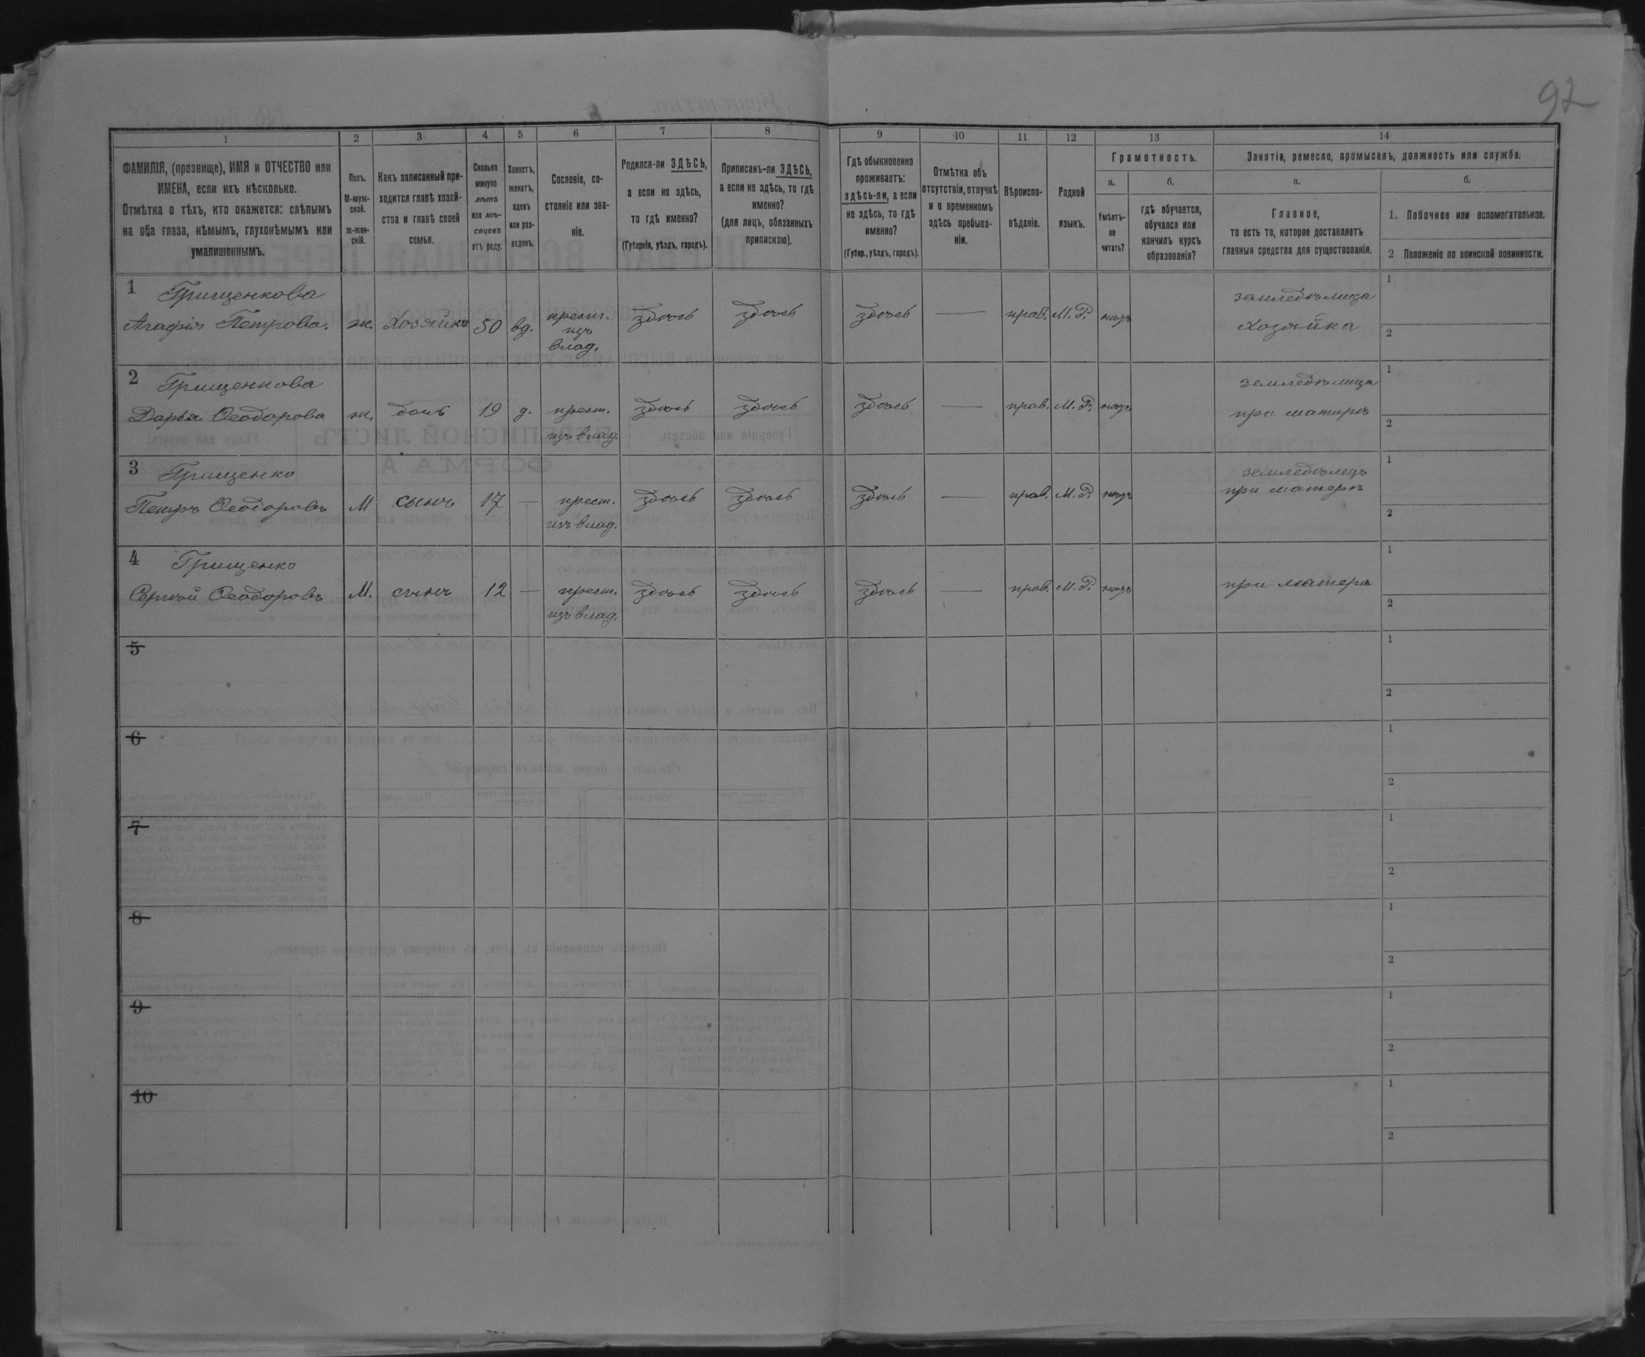 92
1
2
3
4
5
6
7
8
9
10
11
12
13
14
ФАМИЛІЯ, (прозвище), ИМЯ и ОТЧЕСТВО или
ИМЕНА, если ихъ нѣсколько.
Отмѣтка о тѣхъ, кто окажется: слѣпымъ
на оба глаза, нѣмымъ, глухонѣмымъ или
умалишеннымъ.
Полъ.
М-муж-
ской.
Ж-жен-
скій.
Какъ записанный при-
ходится главѣ хозяй-
ства и главѣ своей
семьи.
Сколько
минуло
лѣтъ
или мѣ-
сяцевъ
отъ роду.
Холостъ,
женатъ,
вдовъ
или раз-
веденъ.
Сословіе, со-
стояніе или зва-
ніе.
Родился-ли ЗДѢСЬ,
а если не здѣсь,
то гдѣ именно?
(Губернія, уѣздъ, городъ).
Приписанъ-ли ЗДѢСЬ,
а если не здѣсь, то гдѣ
именно?
(для лицъ, обязанныхъ
припискою).
Гдѣ обыкновенно
проживаетъ:
здѣсь-ли, а если
не здѣсь, то гдѣ
именно?
(Губер., уѣздъ, городъ).
Отмѣтка объ
отсутствіи, отлучкѣ
и о временномъ
здѣсь пребыва-
ніи.
Вѣроиспо-
вѣданіе.
Родной
языкъ.
Грамотность.
а.
Умѣетъ-
ли
читать?
б.
гдѣ обучается,
обучался или
кончилъ курсъ
образованія?
Занятіе, ремесло, промыселъ, должность или служба.
а.
Главное,
то есть то, которое доставляетъ
главныя средства для существованія.
б.
1. Побочное или вспомогательное.
2 Положеніе по воинской повинности.
1 Грищенкова
Агафія Петрова. ж. Хозяйка 50 вд. крест. изъ влад. здѣсь здѣсь здѣсь — прав. М.Р. нѣтъ земледѣлица Хозяйка 1 2
2 Грищенкова
Дарья Ѳеодорова ж. дочь 19 д. крест. изъ влад. здѣсь здѣсь здѣсь — прав. М.Р. нѣтъ земледѣлица при матери 1 2
3 Грищенко
Петръ Ѳеодоровъ М сынъ 17 — крест. изъ влад. здѣсь здѣсь здѣсь — прав. М.Р. нѣтъ земледѣлецъ при матери 1 2
4 Грищенко
Сергѣй Ѳеодоровъ М. сынъ 12 — крест. изъ влад. здѣсь здѣсь здѣсь — прав. М.Р. нѣтъ при матери 1 2
5 1 2
6 1 2
7 1 2
8 1 2
9 1 2
10 1 2